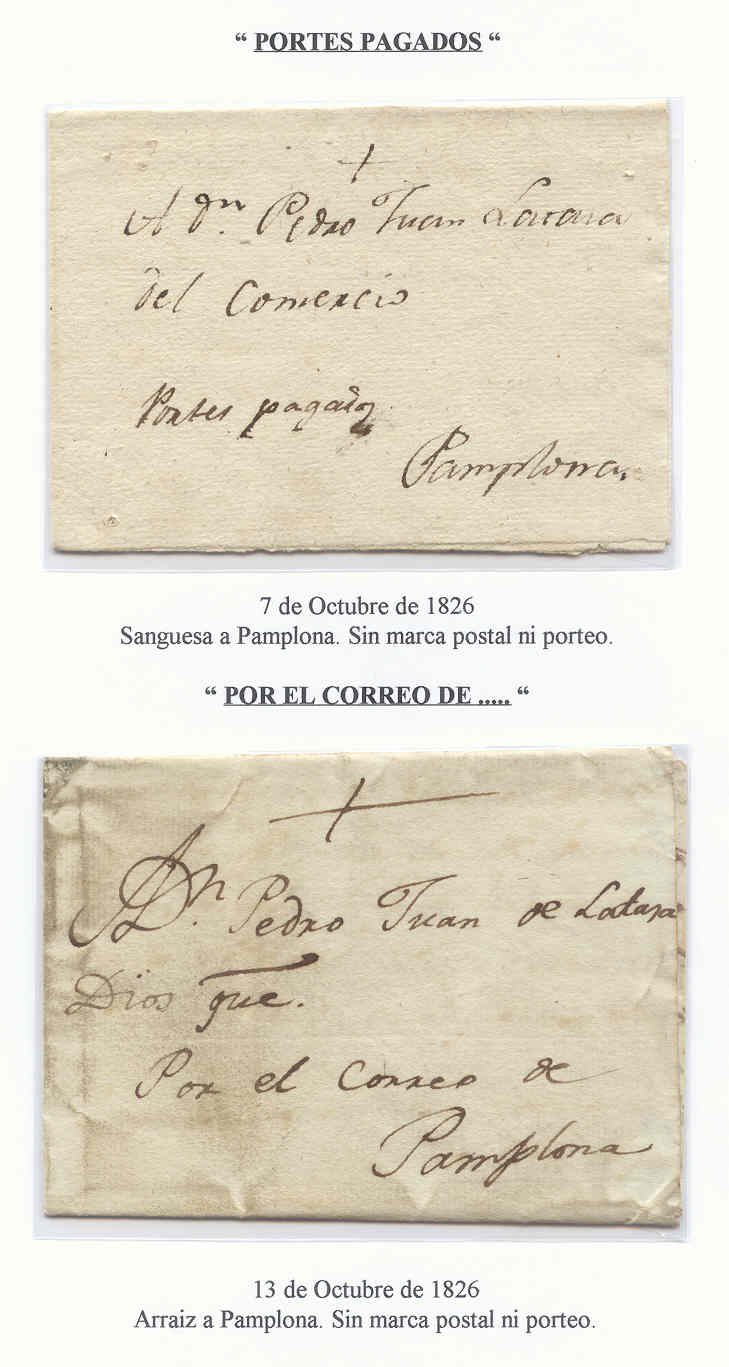 “ PORTES PAGADOS “
+
A Dn. Pedro Juan
del Comercio
Portes pagados
Pamplona.
7 de Octubre de 1826
Sanguesa a Pamplona. Sin marca postal ni porteo.
“ POR EL CORREO DE ..... “
+
A Dn. Pedro Juan de
Dios gue.
Por el Correo de
Pamplona
13 de Octubre de 1826
Arraiz a Pamplona. Sin marca postal ni porteo.